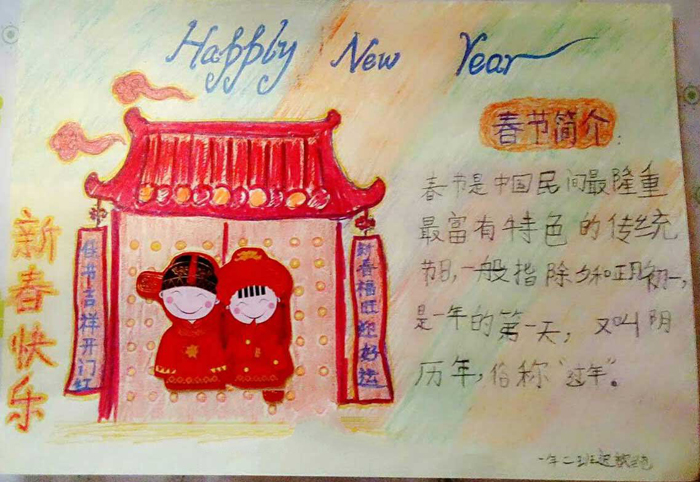 Happly New Year
新春快乐
佳节吉祥开门红
新春福旺迎好
春节简介:
春节是中国民间最隆重
最富有特色的传统
节日,一般指除夕和正月初一,
是一年的第一天,又叫阴
历年,俗称“过年”。
一年二班